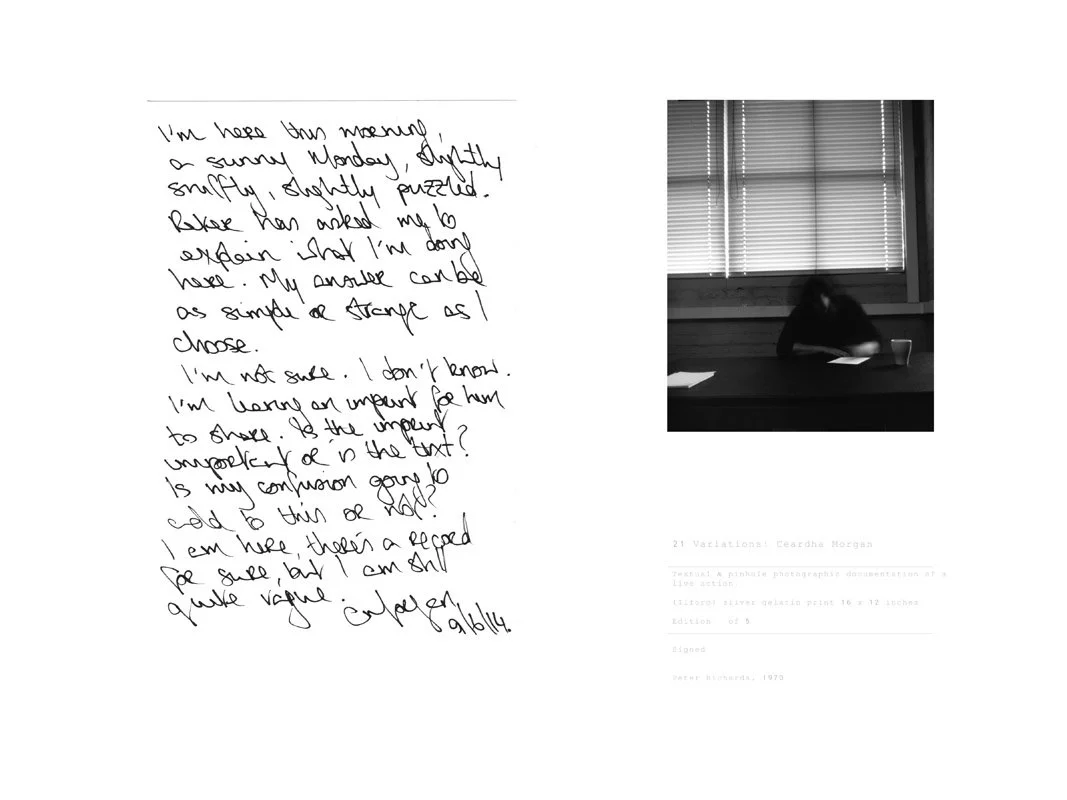 I'm here this morning,
a sunny Monday, slightly
sniffly, slightly puzzled.
Peter has asked me to
explain what I'm doing
here. My answer can be
as simple or strange as I
choose.
I'm not sure. I don't know.
I'm leaving an imprint for him
to share. Is the imprint
important or is the text?
Is my confusion going to
add to this or not?
I am here, there's a record
for sure, but I am still
quite vague.
9/6/14.
21 Variations: Ceardha Morgan
Textual & pinhole photographic documentation of a
live action.
(Ilford) silver gelatin print 16 x 12 inches
Edition of 5
Signed
Peter Richards, 1970